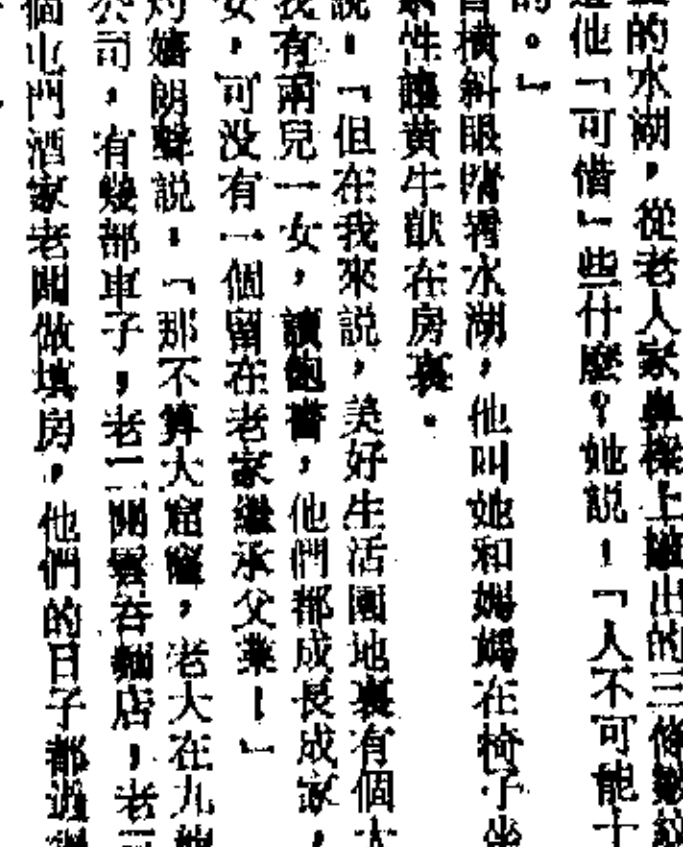 的水湖，從老人家鼻樑上皺出的三條皺紋
他「可惜」些什麼？她説：「人不可能十
的。」
橫斜眼睛看水湖，他叫她和媽媽在椅子坐
性讓黃牛獃在房裏。
説：「但在我來説，美好生活園地裏有個大
我有兩兒一女，讀飽書，他們都成長成家，
女，可没有一個留在老家繼承父業！」
灼嬸朗聲説：「那不算大窟窿，老大在九龍
公司，有幾部車子，老二開雲吞麵店，老三
個屯門酒家老闆做填房，他們的日子都過得